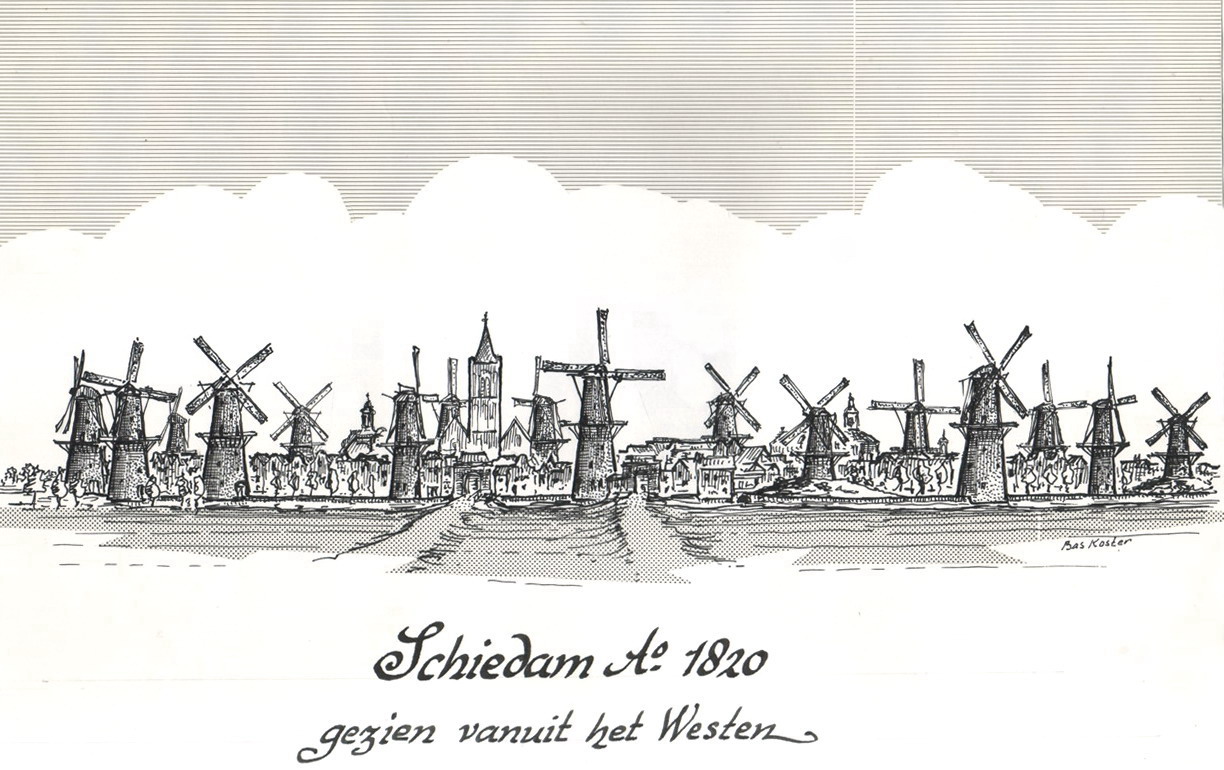 Bas Koster
Schiedam Aº. 1820
gezien vanuit het Westen